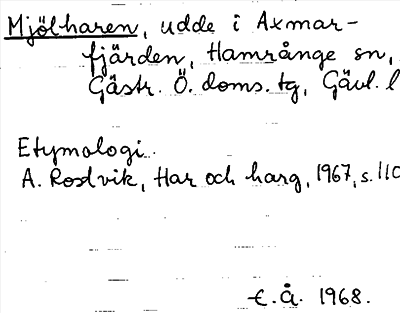 Mjölharen, udde i Axmar-
fjärden, Hamrånge sn,
Gästr. Ö. doms. tg, Gävl. l
Etymologi.
A. Rostvik, Har och harg, 1967, s. 110
E. Å. 1968.